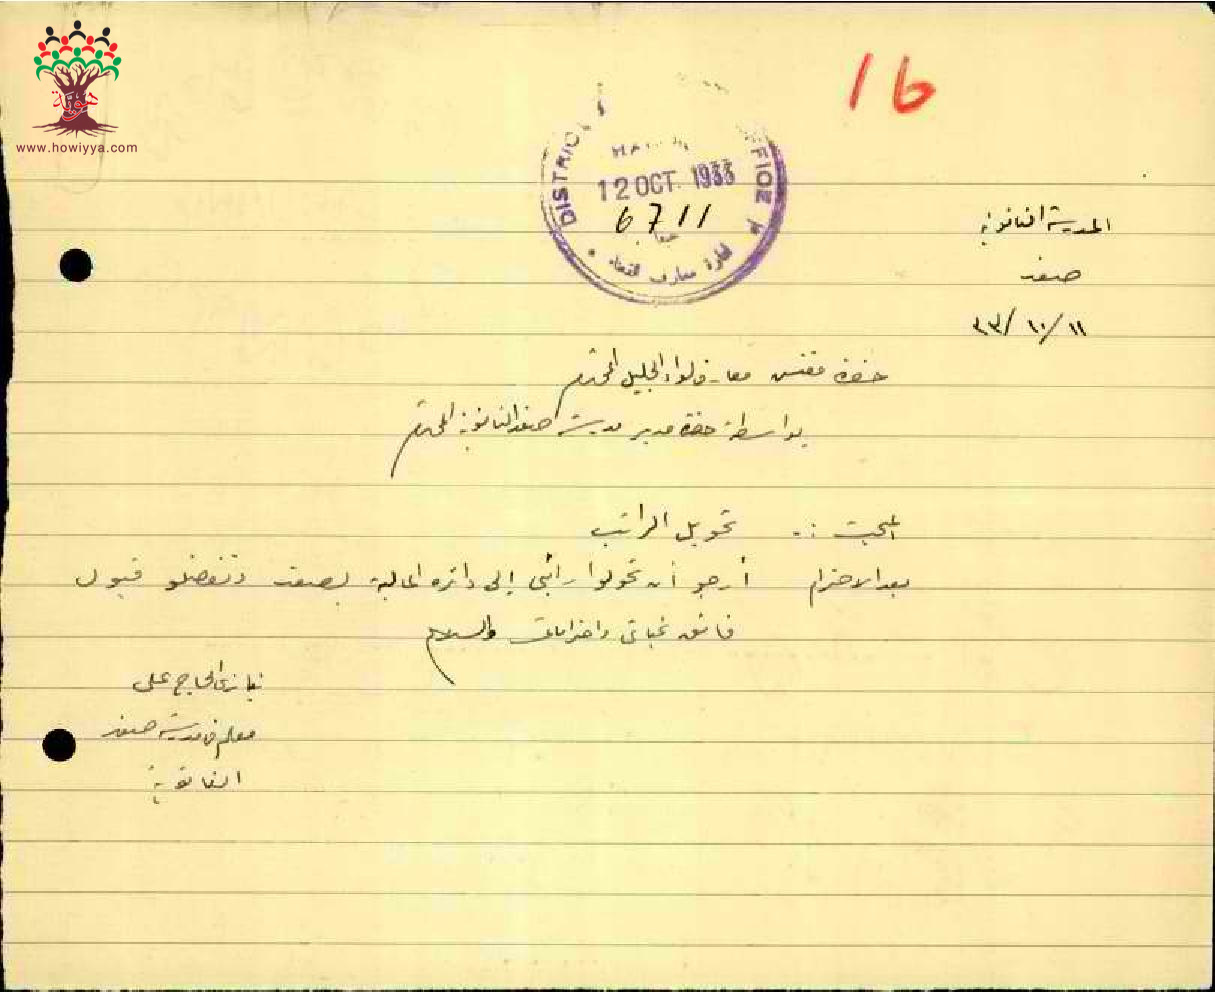 هوية
www.howiyya.com
16
DISTRICT
12 OCT. 1933
6711
ادارة معارف القضاء
المدرسة الثانوية
صفد
١١/١٠/٣٣
حضرة مفتش معارف لواء الجليل المحترم
بواسطة حضرة مدير مدرسة صفد الثانوية المحترم
المبحث :- تحويل الراتب
بعد الاحترام أرجو أن تحولوا راتبي إلى دائرة المالية بصفد وتفضلو قبول
فائق تحياتي واحتراماتي والسلام
نيازي الحاج علي
معلم في مدرسة صفد
الثانوية